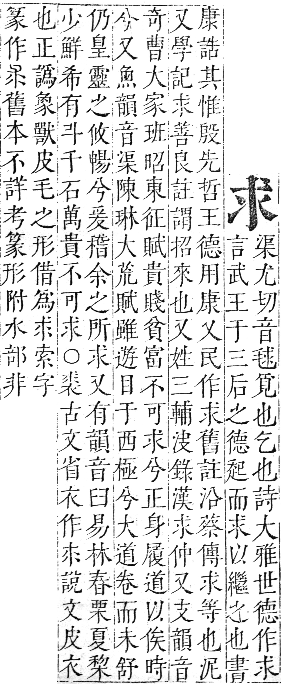 求
渠尤切音毬覓也乞也詩大雅世德作求
言武王于三后之德起而求以繼之也書
康誥其惟殷先哲王德用康乂民作求舊註沿蔡傳求等也泥
又學記求善良註謂招來也又姓三輔決錄漢求仲又支韻音
奇曹大家班昭東征賦貴賤貧富不可求兮正身履道以俟時
今又魚韻音渠陳琳大荒賦雖遊目于西極兮大道卷而未舒
仍皇靈之攸暢兮爰稽余之所求又有韻音臼易林春栗夏棃
少鮮希有斗千石萬貴不可求○裘古文省衣作求說文皮衣
也正譌象獸皮毛之形借爲求索字
篆作求舊本不詳考篆形附水部非